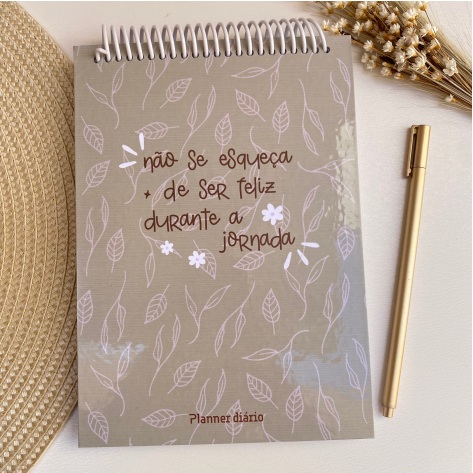 não se esqueça
+ de ser feliz
durante a
jornada
Planner diário